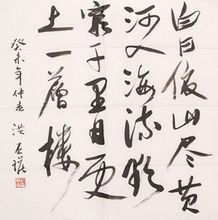 白日依山尽黄
河入海流欲
窮千里目更
上一層樓
癸未年仲春 洪